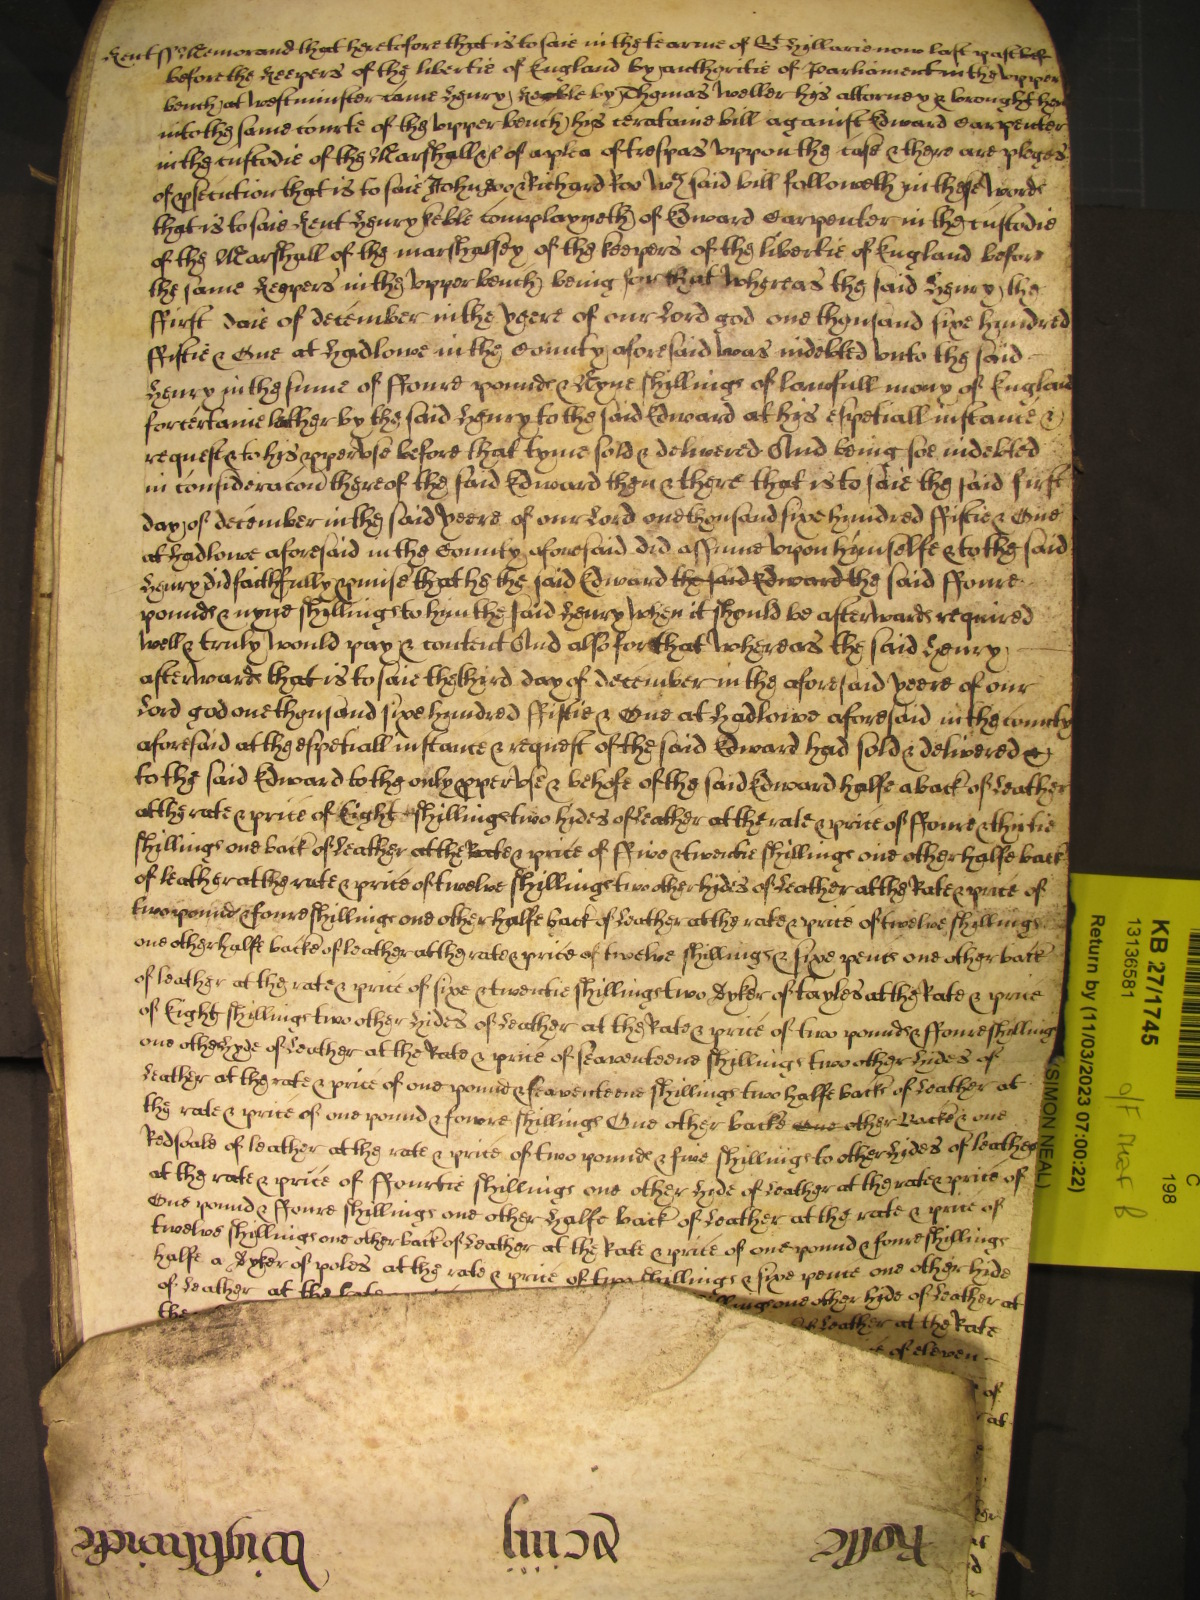 Kent ss Memorand that heretofore that is to saie in the tearme of St Hillarie now last past bef
before the Keepers of the libertie of England by authoritie of Parliament in the upper
bench at Westminster came Henry Keble by Thomas Weller his attorney & brought her
into the same courte of the upper bench his certaine bill against Edward Carpenter
in the custodie of the Marshall &c of a plea of trespas uppon the case & there are pleges
of psecution that is to saie John Doo & Richard Roo wch said bill followeth in these words
that is to saie Kent Henry Keble complayneth of Edward Carpenter in the custodie
of the Marshall of the marshalsey of the keepers of the libertie of England before
the same Keepers in the upper bench being for that whereas the said Henry the
ffirst daie of december in the yeere of our Lord god one thousand sixe hundred
ffiftie & One at Hadlowe in the County aforesaid was indebted unto the said
Henry in the summe of ffoure pounds & Nyne shillings of lawfull mony of England
for certaine leather by the said Henry to the said Edward at his espetiall instance &
request & to his pper use before that tyme sold & delivered And being soe indebted
in consideracon thereof the said Edward then & there that is to saie the said first
day of december in the said yeere of our Lord one thousand sixe hundred ffiftie & One
at Hadlowe aforesaid in the County aforesaid did assume upon himselfe & to the said
Henry did faithfully pmise that he the said Edward the said Edward the said ffoure
pounds & nyne shillings to him the said Henry when it should be afterwards required
well & truly would pay & content And also for that whereas the said Henry
afterwards that is to saie the third day of december in the aforesaid yeere of our
Lord god one thousand sixe hundred ffiftie & One at Hadlowe aforesaid in the county
aforesaid at the espetiall instance & request of the said Edward had sold & delivered
to the said Edward to the only pper use & behofe of the said Edward halfe a back of Leather
at the rate & price of Eight shillings two hides of Leather at the rate & price of ffoure & thirtie
shillings one back of Leather at the Rate & price of ffive & twentie shillings one other halfe back
of leather at the rate & price of twelve shillings two other hydes of Leather at the Rate & price of
two pound & foure shillings one other halfe back of Leather at the rate & price of twelve shillings
one other halfe backe of leather at the rate & price of twelve shillings & sixe pence one other back
of leather at the rate & price of sixe & twentie shillings two Dyker of tayles at the Rate & price
of Eight shillings two other Hides of Leather at the Rate & price of two pounds & ffoure shillings
one other Hyde of Leather at the Rate & price of seaventeene shillings two other Hides of
Leather at the rate & price of one pound & seaventeene shillings two halfe backs of Leather at
the rate & price of one pound & fowre shillings One other backe One other Backe & one
Redsoale of leather at the rate & price of two pounds & five shillings to other Hides of leather
at the rate & price of ffourtie shillings one other Hide of Leather at the rate & price of
One pound & ffoure shillings one other Halfe back of Leather at the rate & price of
twelve shillings one other back of Leather at the Rate & price of one pound & foure shillings
halfe a Dyker of poles at the rate & price of two shillings & sixe pence one other hide
of Leather at the Rate
llings one other hyde of Leather at
the
of Leather at the Rate
of eleven
of
at
Rolle
Wightwicke
KB 27/1745
13136581
Return by (11/03/2023 07:00:22)
(SIMON NEAL)
C
198